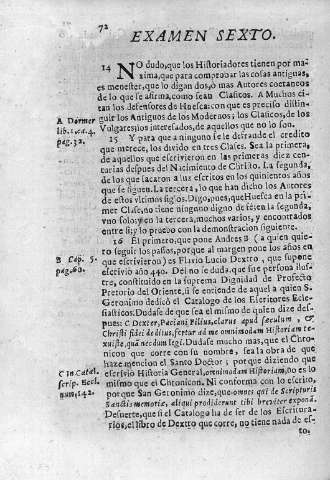 72
EXAMEN SEXTO.
14 NO dudo, que los Historiadores tienen por ma-
xima, que para comprobar las cosas antiguas,
es menester, que lo digan dos, o mas Autores coetaneos
de lo que se afirma, como sean Clasicos. A Muchos ci-
tan los defensores de Huesca: con que es preciso distin-
guir los Antiguos de los Modernos; los Clasicos, de los
Vulgares; los interesados, de aquellos que no lo son.
A Dormer
lib. 1. c. 4.
pag. 32.
15 Y para que a ninguno se le defraude el credito
que merece, los divido en tres Clases. Sea la primera,
de aquellos que escrivieron en las primeras diez cen-
turias despues del Nacimiento de Christo. La segunda,
de los que sacaron a luz escritos en los quinientos años
que se siguen. La tercera, lo que han dicho los Autores
de estos vltimos siglos. Digo, pues, que Huesca en la pri-
mer Clase, no tiene ninguno digno de fè; en la segunda,
vno solo; y en la tercera, muchos varios, y encontrados
entre si; y lo pruebo con la demonstracion siguiente.
16 El primero, que pone Andres B (a quien quie-
ro seguir los pasos, porque al margen pone los años en
que escrivieron) es Flavio Lucio Dextro, que supone
escrivio año 440. Dèl no se duda, que fue persona ilus-
tre, constituido en la suprema Dignidad de Prefecto
Pretorio del Oriente, si se entiende de aquel a quien S.
Geronimo dedicó el Catalogo de los Escritores Ecle-
siasticos. Dudase de que sea el mismo de quien dize des-
pues: C Dexter, Paciani Filius, clarus apud sæculum, &
Christi fidei deditus, fertur ad me omnimodam Historiam te-
xuisse, quà necdum legi. Dudase mucho mas, que el Chro-
nicon que corre con su nombre, sea la obra de que
haze mencion el Santo Doctor; porque diziendo que
escrivio Historia General, omnimodam Historiam, no es lo
mismo que el Chronicon. Ni conforma con lo escrito,
porque San Geronimo dize, que omnes qui de Scripturis
Sanctis memoriæ, aliqui prodiderunt tibi breviter exponã.
Desuerte, que si el Catalogo ha de ser de los Escritura-
rios, el libro de Dextro que corre, no tiene nada de es-
to:
B Cap. 5.
pag. 60.
C In Catal.
scrip. Eccl.
num. 142.